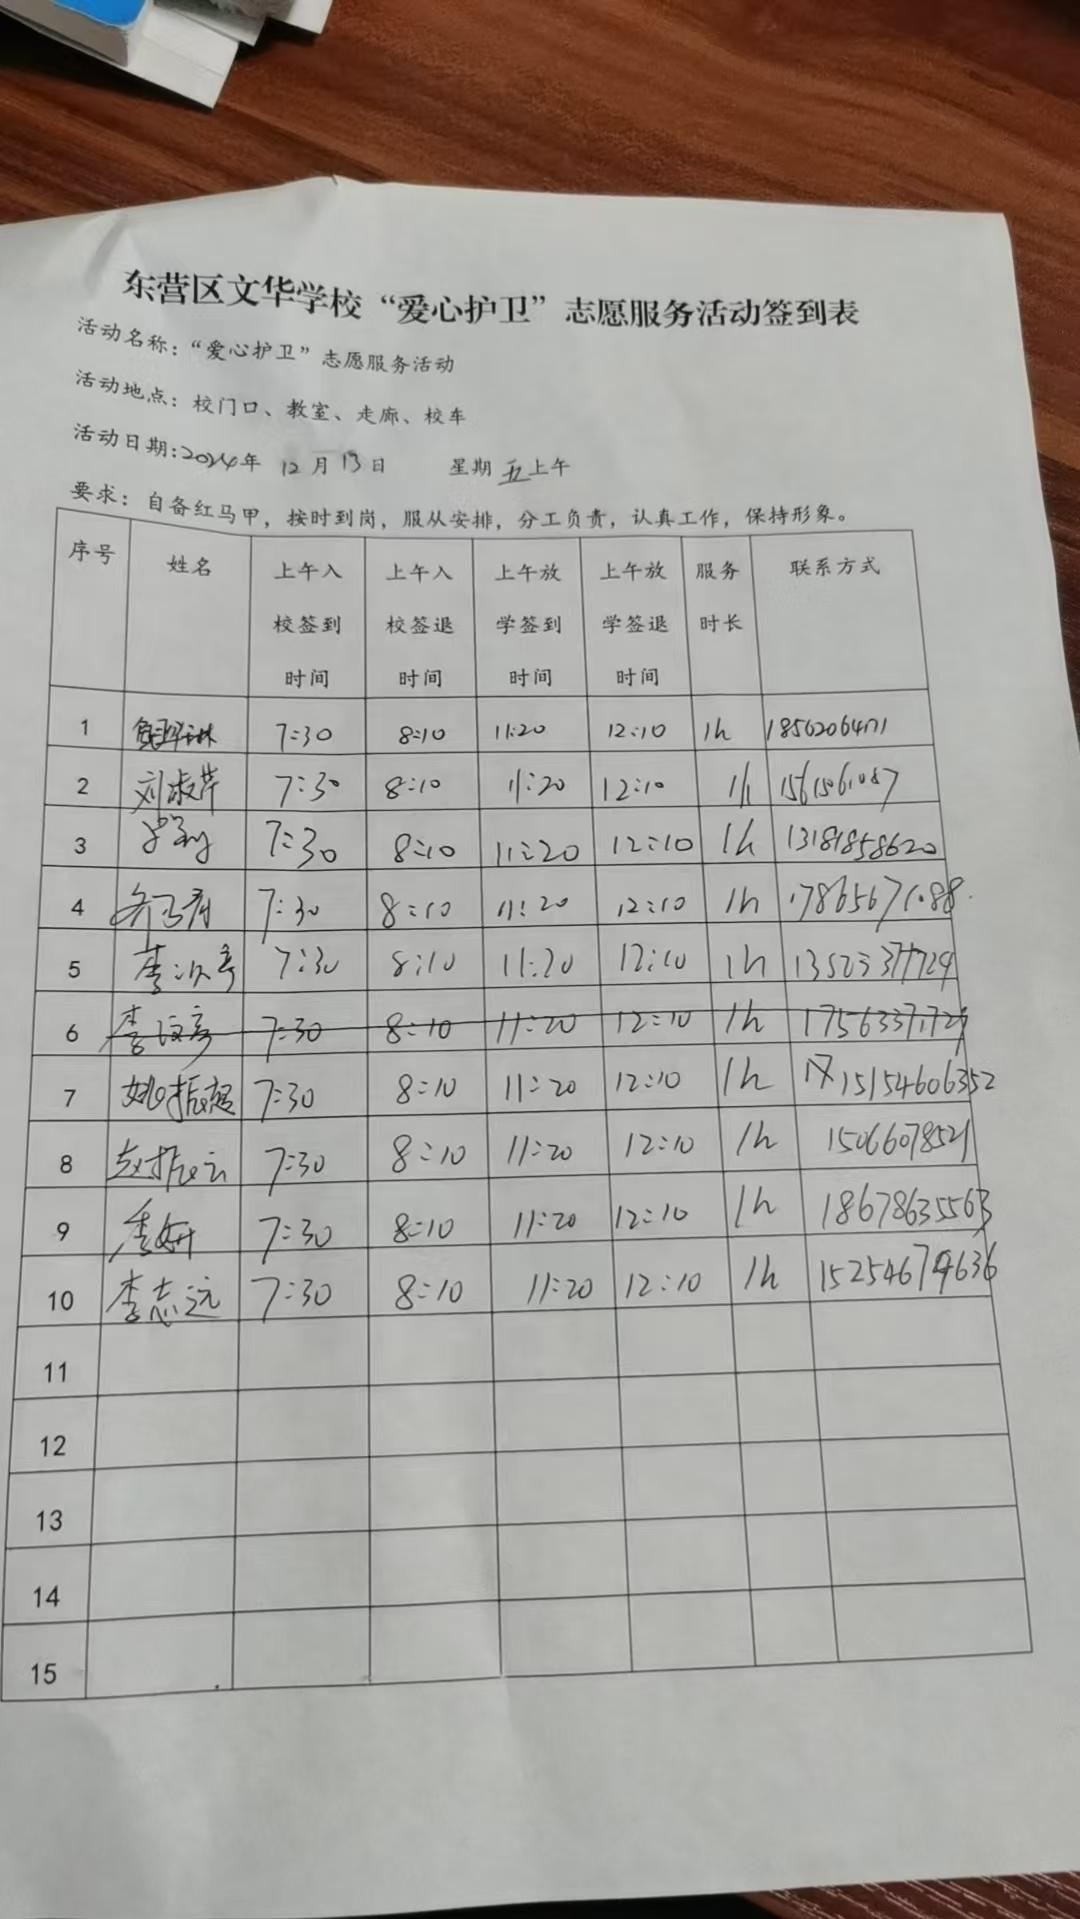 东营区文华学校“爱心护卫”志愿服务活动签到表
活动名称：“爱心护卫”志愿服务活动
活动地点：校门口、教室、走廊、校车
活动日期:2024年 12月13日 星期五上午
要求：自备红马甲，按时到岗，服从安排，分工负责，认真工作，保持形象。
序号 姓名 上午入校签到时间 上午入校签退时间 上午放学签到时间 上午放学签退时间 服务时长 联系方式
1 7:30 8:10 11:20 12:10 1h
2 刘淑芹 7:30 8:10 11:20 12:10 1h
3 7:30 8:10 11:20 12:10 1h 13181858620
4 7:30 8:10 11:20 12:10 1h
5 李汶彦 7:30 8:10 11:20 12:10 1h
6 李汶彦 7:30 8:10 11:20 12:10 1h
7 姚振超 7:30 8:10 11:20 12:10 1h 15154606352
8 赵振云 7:30 8:10 11:20 12:10 1h 15066078521
9 季妍 7:30 8:10 11:20 12:10 1h 18678635563
10 李志远 7:30 8:10 11:20 12:10 1h
11
12
13
14
15